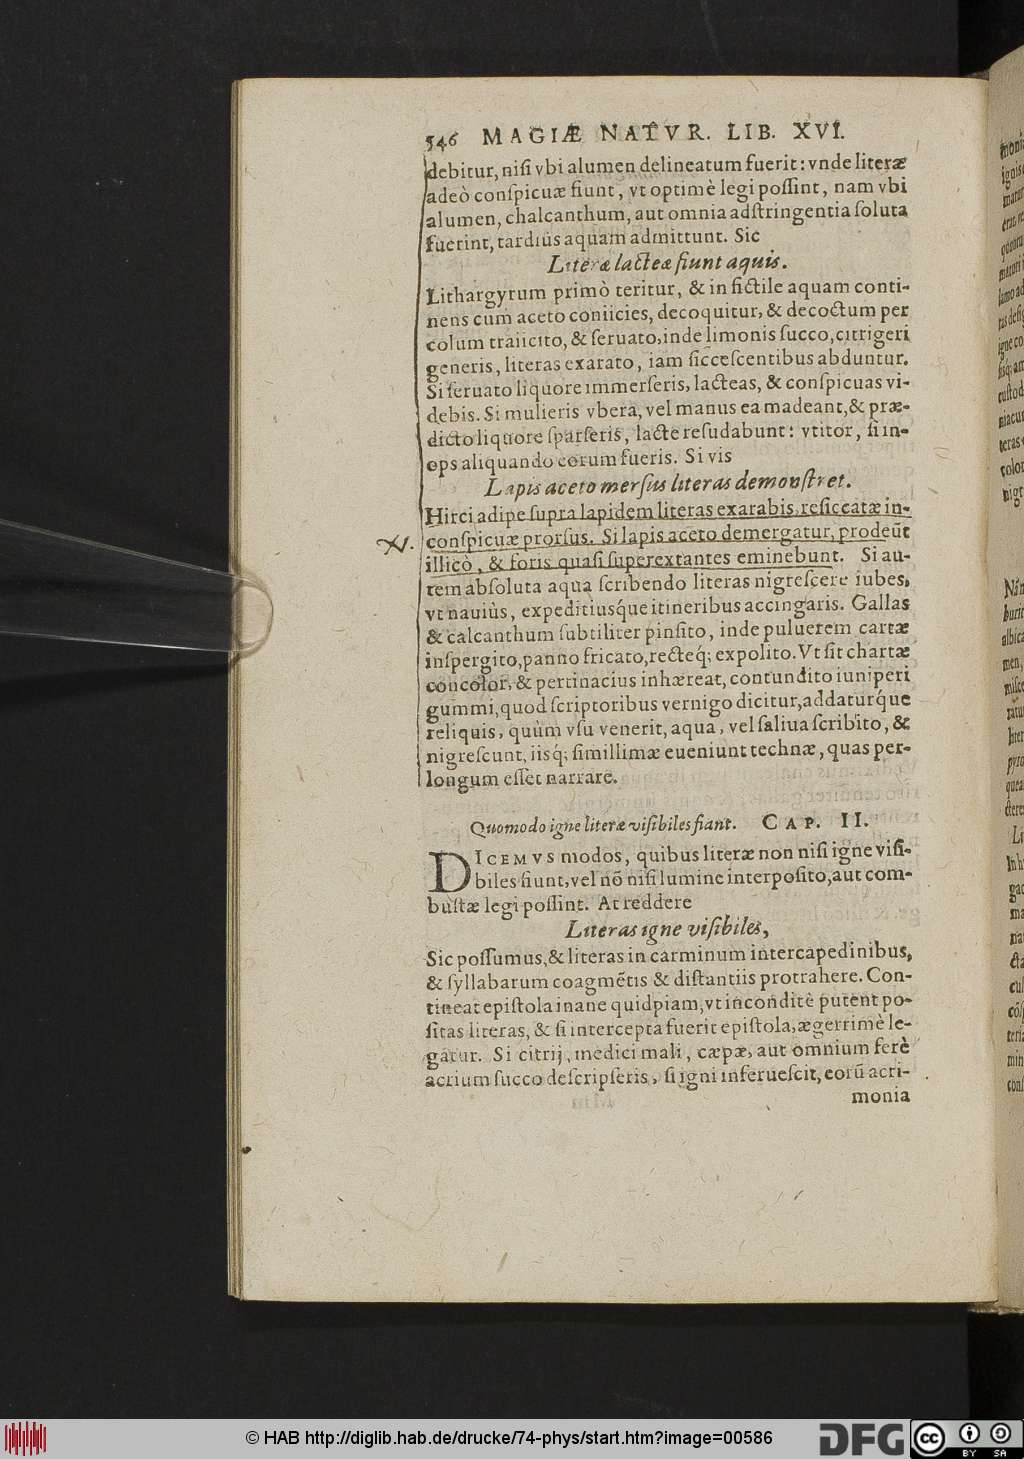 546 MAGIÆ NATVR. LIB. XVI.
debitur, niſi vbi alumen delineatum fuerit: vnde literæ
adeò conſpicuæ fiunt, vt optimè legi poſſint, nam vbi
alumen, chalcanthum, aut omnia adſtringentia ſoluta
fuerint, tardiùs aquam admittunt. Sic
Literæ lacteæ fiunt aquis.
Lithargyrum primò teritur, & in fictile aquam conti-
nens cum aceto coniicies, decoquitur, & decoctum per
colum traiicito, & ſeruato, inde limonis ſucco, citrigeri
generis, literas exarato, iam ſicceſcentibus abduntur.
Si ſeruato liquore immerſeris, lacteas, & conſpicuas vi-
debis. Si mulieris vbera, vel manus ea madeant, & præ-
dicto liquore ſparſeris, lacte reſudabunt: vtitor, ſi in-
ops aliquando eorum fueris. Si vis
Lapis aceto merſus literas demonſtret.
Hirci adipe ſupra lapidem literas exarabis, reſiccatæ in-
conſpicuæ prorſus. Si lapis aceto demergatur, prodeūt
illicò, & foris quaſi ſuperextantes eminebunt. Si au-
tem abſoluta aqua ſcribendo literas nigreſcere iubes,
vt nauiùs, expeditiusq́ue itineribus accingaris. Gallas
& calcanthum ſubtiliter pinſito, inde puluerem cartæ
inſpergito, panno fricato, recteq́; expolito. Vt ſit chartæ
concolor, & pertinacius inhæreat, contundito iuniperi
gummi, quod ſcriptoribus vernigo dicitur, addaturq́ue
reliquis, quùm vſu venerit, aqua, vel ſaliua ſcribito, &
nigreſcunt, iisq́; ſimillimæ eueniunt technæ, quas per-
longum eſſet narrare.
Quomodo igne literæ viſibiles fiant. CAP. II.
DICEMVS modos, quibus literæ non niſi igne viſi-
biles fiunt, vel nō niſi lumine interpoſito, aut com-
buſtæ legi poſſint. At reddere
Literas igne viſibiles,
Sic poſſumus, & literas in carminum intercapedinibus,
& ſyllabarum coagmētis & diſtantiis protrahere. Con-
tineat epiſtola inane quidpiam, vt inconditè putent po-
ſitas literas, & ſi intercepta fuerit epiſtola, ægerrimè le-
gatur. Si citrij, medici mali, cæpæ, aut omnium ferè
acrium ſucco deſcripſeris, ſi igni inferueſcit, eorū acri-
monia
© HAB http://diglib.hab.de/drucke/74-phys/start.htm?image=00586
DFG
cc BY SA